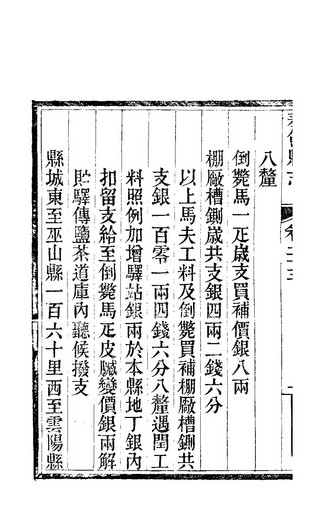 八釐
倒斃馬一疋歲支買補價銀八兩
棚厰槽鍘歲共支銀四兩二錢六分
以上馬夫工料及倒斃買補棚厰槽鍘共
支銀一百零一兩四錢六分八釐遇閏工
料照例加增驛站銀兩於本縣地丁銀內
扣留支給至倒斃馬疋皮臟變價銀兩解
貯驛傳鹽茶道庫內聽候撥支
縣城東至巫山縣一百六十里西至雲陽縣